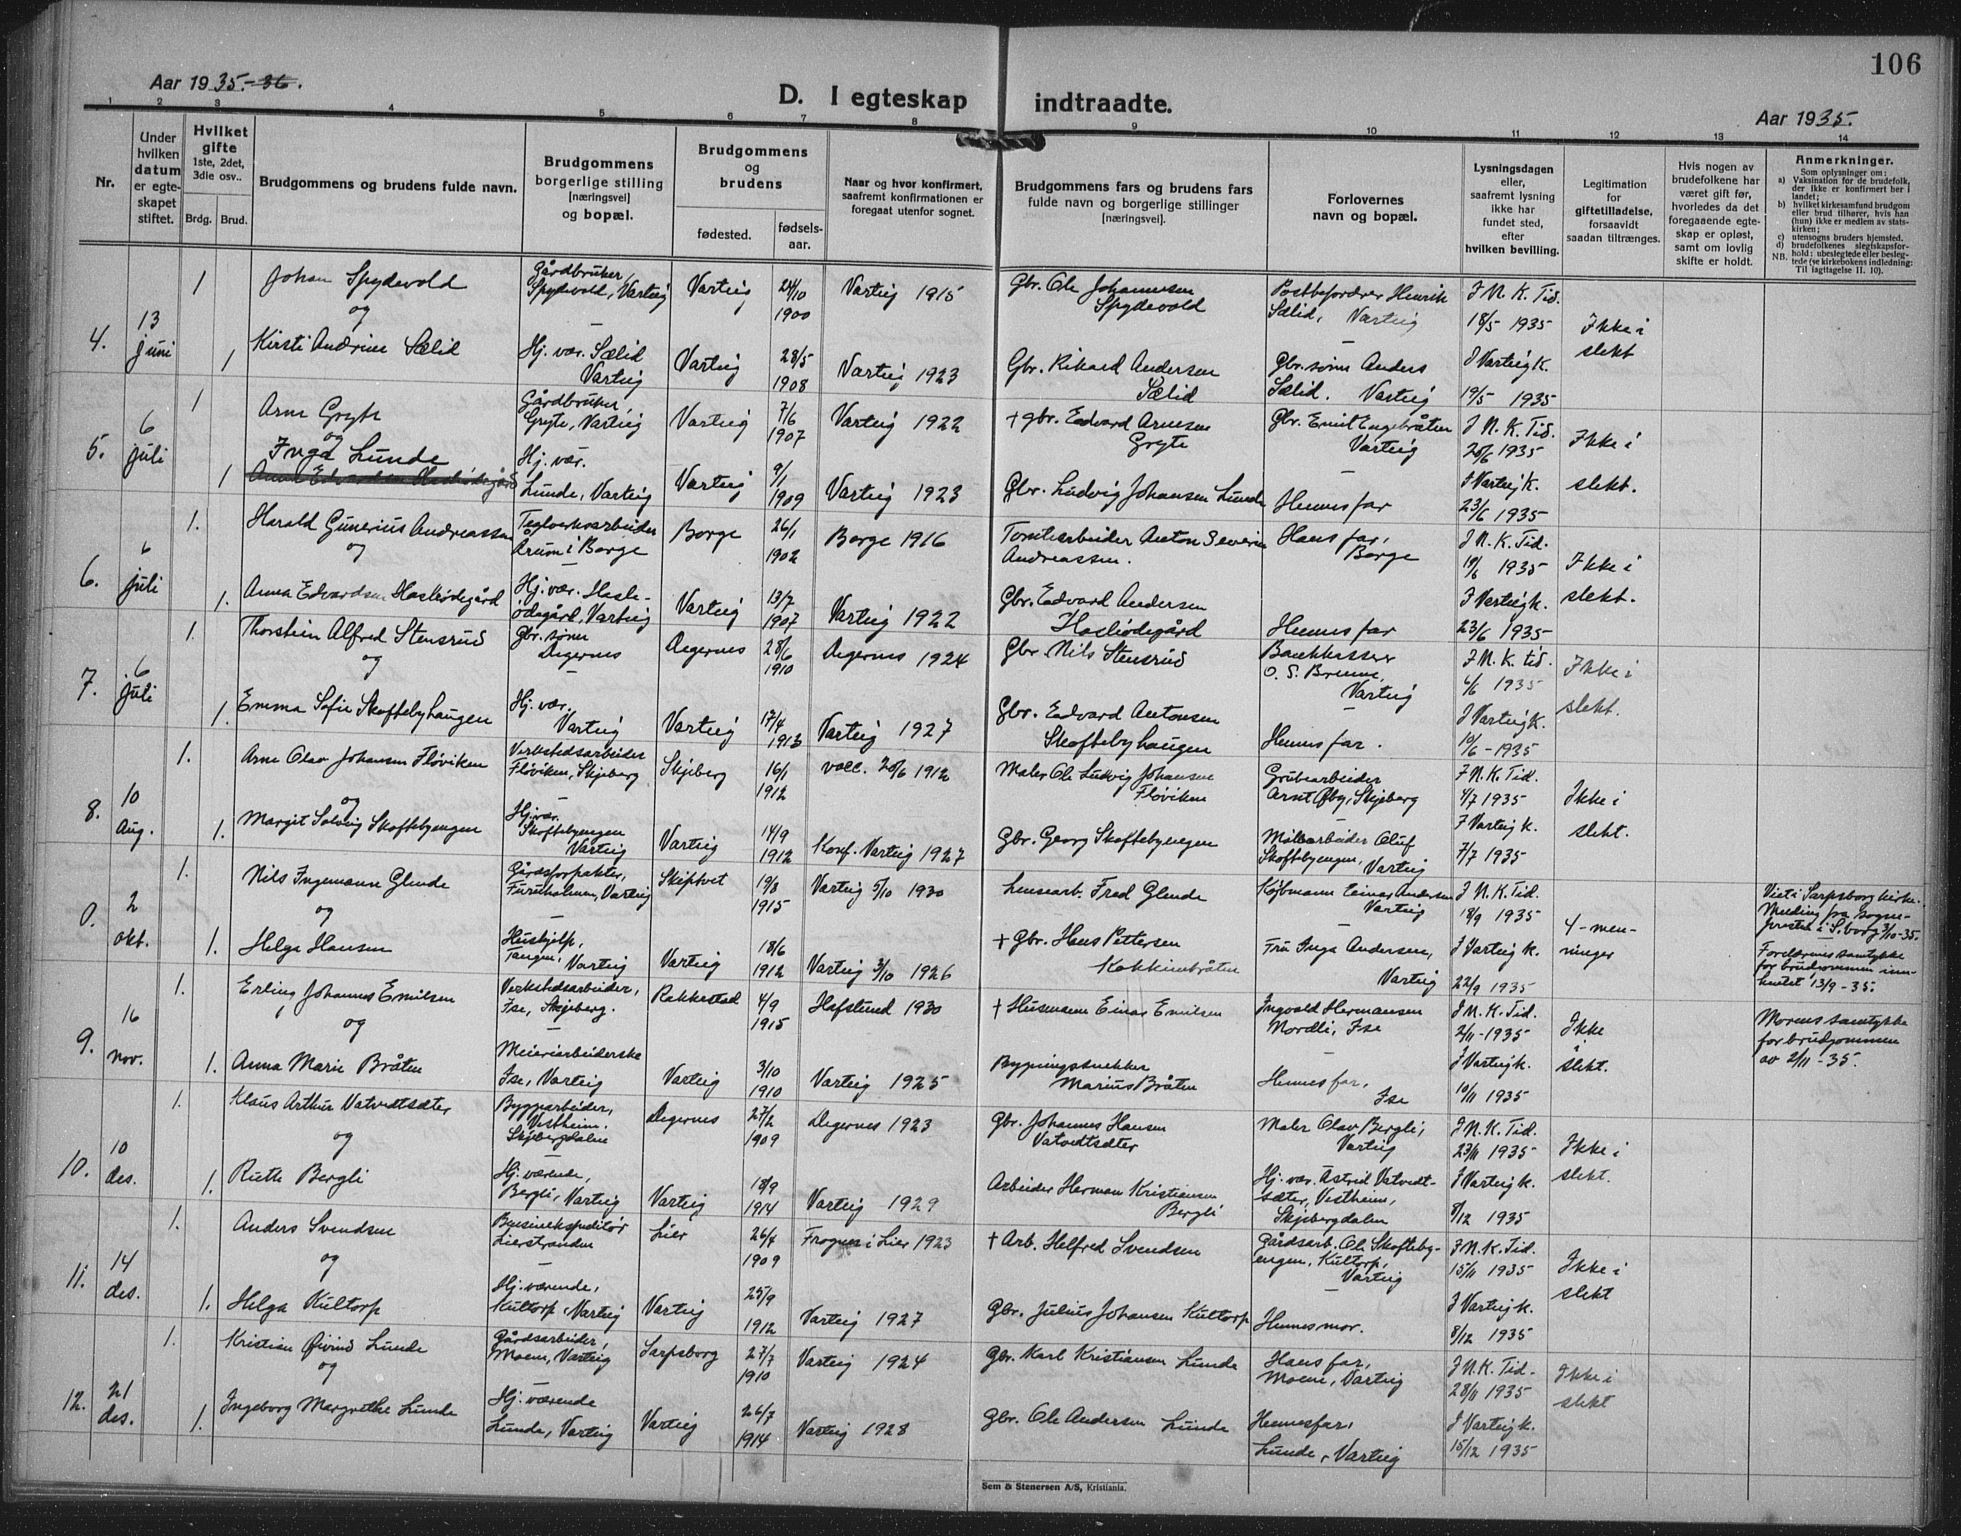 106
Aar 1935.-36.
D. I egteskap indtraadte.
Aar 1935.
1 2 3 4 5 6 7 8 9 10 11 12 13 14
Nr.
Under hvilken datum er egteskapet stiftet.
Hvilket gifte
1ste, 2det, 3die osv..
Brdg. Brud.
Brudgommens og brudens fulde navn.
Brudgommens borgerlige stilling [næringsvei] og bopæl.
Brudgommens og brudens
fødested. fødselsaar.
Naar og hvor konfirmert, saafremt konfirmationen er foregaat utenfor sognet.
Brudgommens fars og brudens fars fulde navn og borgerlige stillinger [næringsvei].
Forlovernes navn og bopæl.
Lysningsdagen eller, saafremt lysning ikke har fundet sted, efter hvilken bevilling.
Legitimation for giftetilladelse, forsaavidt saadan tiltrænges.
Hvis nogen av brudefolkene har været gift før, hvorledes da det foregaaende egteskap er opløst, samt om lovlig skifte er holdt.
Anmerkninger.
Som oplysning om:
a) Vaksination for de brudefolk, der ikke er konfirmert her i landet;
b) hvilket kirkesamfund brudgom eller brud tilhører, hvis han (hun) ikke er medlem av statskirken;
c) utensogns bruders hjemsted.
d) brudefolkenes slegtskapsforhold: ubeslegtede eller beslegtede (se kirkebokens indledning:
NB. Til iagttagelse II. 10).
4. 13 juni
1 Johan Spydevold Gårdbruker, Spydevold, Varteig Varteig 24/10 1900 Varteig 1915 Gbr. Ole Johannesen Spydevold Postbefordrer Henrik Sælid, Varteig I N. K. Tid. 18/5 1935 Ikke i slekt
og
1 Kirsti Andrine Sælid Hj. vær. Sælid Varteig Varteig 28/5 1908 Varteig 1923 Gbr. Rikard Andersen Sælid Gbr. sønn Anders Sælid. Varteig I Varteig K. 19/5 1935
5. 6 juli
1 Arne Gryte Gårdbruker, Gryte, Varteig Varteig 7/6 1907 Varteig 1922 + gbr. Edvard Arnesen Gryte Gbr. Emil Engebråten Varteig I N. K. Tid. 20/6 1935 Ikke i slekt.
og
1 Inga Lunde Hj. vær. Lunde, Varteig Varteig 9/1 1909 Varteig 1923 Gbr. Ludvig Johansen Lunde Hennes far I Varteig K. 23/6 1935
6. 6 juli
1. Harald Gunerius Andreassen Teglverksarbeider Årum i Borge Borge 26/1 1902 Borge 1916 Tomtearbeider Anton Severin Andreassen. Hans far, Borge I N. K. Tid. 19/6 1935 Ikke i slekt.
og
1. Anna Edvardsen Hasleødegård Hj. vær. Hasleødegård, Varteig Varteig 13/7 1907 Varteig 1922 Gbr. Edvard Andersen Hasleødegård Hennes far I Varteig K. 23/6 1935
7. 6 juli
1. Thorstein Alfred Stensrud Gbr. sønn Degernes Degernes 28/6 1910 Degernes 1924 Gbr. Nils Stensrud Bankkasserer O. S. Brenne, Varteig I N. K. tid. 4/6 1935 Ikke i slekt.
og
1. Emma Sofie Skoftebyhaugen Hj. vær. Varteig Varteig 17/4 1913 Varteig 1927 Gbr. Edvard Antonsen Skoftebyhaugen Hennes far. I Varteig K. 10/6-1935
8. 10 Aug.
1. Arne Olav Johansen Fløviken Verkstedsarbeider Fløviken, Skjeberg Skjeberg 16/1 1912 vacc. 20/6 1912 Maler Ole Ludvig Johansen Fløviken Grubearbeider Arnt Øby, Skjeberg I N. K. Tid. 4/7 1935 Ikke i slekt.
og
1. Margit Solveig Skoftebyengen Hj. vær. Skoftebyengen Varteig Varteig 14/9 1912 Konf. Varteig 1927 Gbr. Georg Skoftebyengen Møllearbeider Oluf Skoftebyengen, Varteig I Varteig K. 7/7 1935
0. 2 okt.
1. Nils Ingemann Glende Gårdsforpakter, Furuholmen, Varteig Skiptvet 19/8 1915 Varteig 5/10 1930 Lensearb. Fred Glende Kjøbmann Einar Andersen Varteig I N. K. Tid. 18/9 1935 4-menninger Viet i Sarpsborg kirke. Melding fra sognepresten i S.borg 3/10-35.
og
1. Helga Hansen Hushjelp, Tangen, Varteig Varteig 18/6 1912 Varteig 3/10 1926 + Gbr. Hans Pettersen Kokkimbråten Fru Inga Andersen, Varteig I Varteig K. 22/9 1935 Foreldrenes samtykke for brudgommen innhentet 13/9-35.
9. 16 nov.
1. Erling Johannes Emilsen Verkstedsarbeider, Ise, Skjeberg. Rakkestad 4/9 1915 Hafslund 1930 + Husmann Einar Emilsen Ingvald Hermansen Nordli, Ise I N. K. Tid. 2/11-1935 Ikke slekt. Morens samtykke for brudgommen av 2/11-35.
og
1. Anna Marie Bråten Meieriarbeiderske Ise, Varteig Varteig 3/10 1910 Varteig 1925 Bygningssnekker Marius Bråten Hennes far, Ise I Varteig K. 10/11 1935
10. 10 des.
1. Klaus Arthur Vatvedtsæter Byggarbeider, Vestheim. Skjebergdalen Degernes 27/2 1909 Degernes 1923 Gbr. Johannes Hansen Vatvedtsæter Maler Olav Bergli, Varteig I N. K. Tid. 23/11 1935 Ikke i slekt.
og
1. Ruth Bergli Hj. værende, Bergli, Varteig Varteig 18/9 1914 Varteig 1929 Arbeider Herman Kristiansen Bergli Hj. vær. Astrid Vatvedtsæter, Vestheim, Skjebergdalen I Varteig K. 8/12 1935
11. 14 des.
1. Anders Svendsen Bensinekspeditør Lierstranden Lier 26/4 1909 Frogner i Lier 1923 + Arb. Helfred Svendsen Gårdsarb. Ole Skoftebyengen, Kultorp, Varteig I N. K. Tid. 15/11 1935 Ikke i slekt
og
1. Helga Kultorp Hj. værende, Kultorp, Varteig Varteig 25/9 1912 Varteig 1927 Gbr. Julius Johansen Kultorp Hennes mor. I Varteig K. 8/12 1935
12. 21 des.
1. Kristian Øivind Lunde Gårdsarbeider, Moene, Varteig Sarpsborg 27/7 1910 Varteig 1924 Gbr. Karl Kristiansen Lunde Hans far, Moene, Varteig I N. K. Tid. 28/11 1935 Ikke i slekt
og
1. Ingeborg Margrethe Lunde Hj. værende Lunde, Varteig Varteig 26/7 1914 Varteig 1928 Gbr. Ole Andersen Lunde Hennes far, Lunde, Varteig I Varteig K. 15/12 1935
Sem & Stenersen A/S, Kristiania.